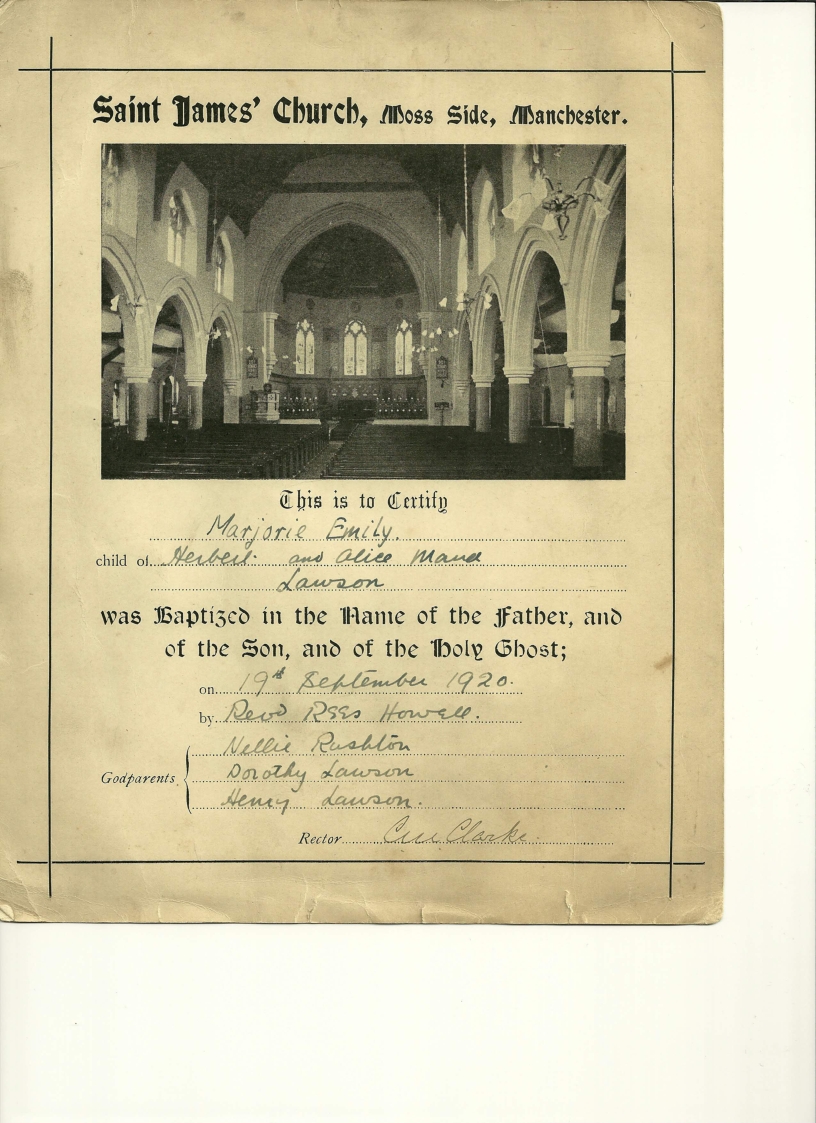 Saint James' Church, Moss Side, Manchester.
This is to Certify
Marjorie Emily.
child of Herbert and Alice Maud
Lawson
was Baptized in the Name of the Father, and
of the Son, and of the Holy Ghost;
on 19th September 1920.
by Revd Rees Howell.
Nellie Rushton
Godparents Dorothy Lawson
Henry Lawson.
Rector Clarke.